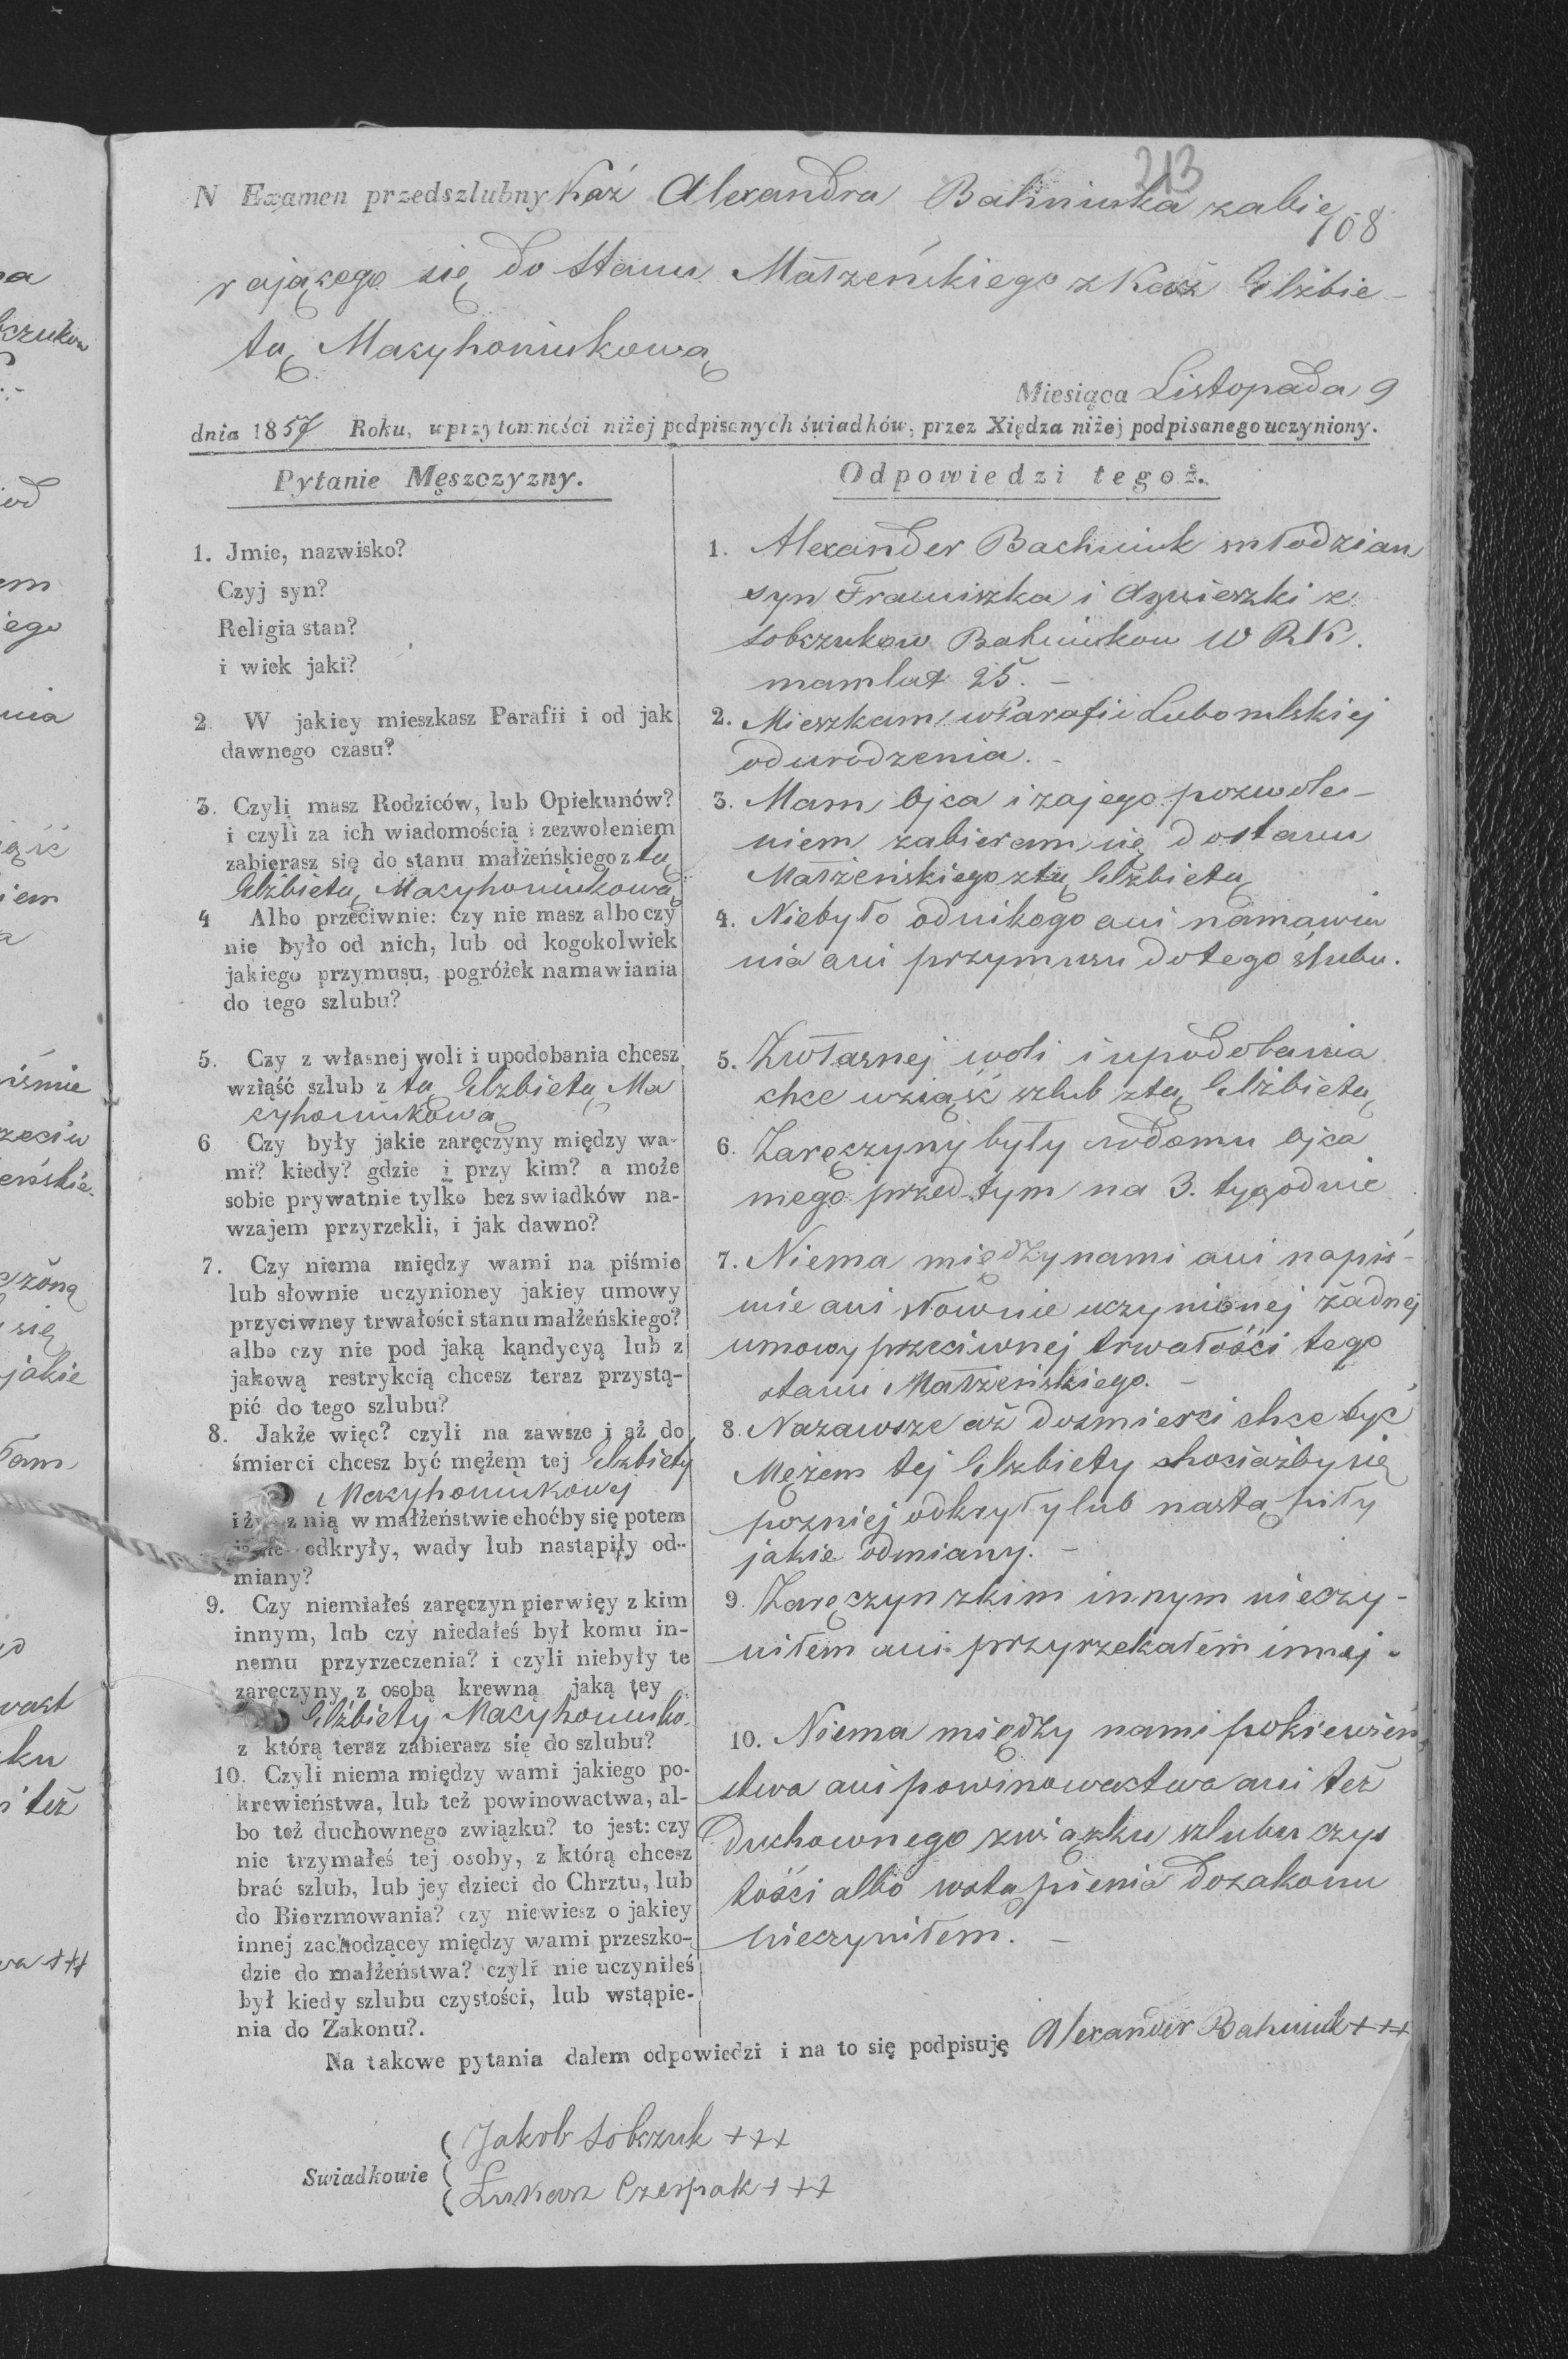 213
108
N Examen przedszlubny Kaź Alexandra Bahniuka zabie
rającego się do stanu Małżeńskiego z Kaź Elżbie-
tą Macyhoniukową
Miesiąca Listopada 9
dnia 1857 Roku, w przytomności niżej podpisanych świadków, przez Xiędza niżej podpisanego uczyniony.
Pytanie Męszczyzny.
1. Jmie, nazwisko?
Czyj syn?
Religia stan?
i wiek jaki?
2. W jakiey mieszkasz Parafii i od jak
dawnego czasu?
3. Czyli masz Rodziców, lub Opiekunów?
i czyli za ich wiadomością i zezwoleniem
zabierasz się do stanu małżeńskiego z tą
Elżbietą Macyhoniukową
4 Albo przeciwnie: czy nie masz albo czy
nie było od nich, lub od kogokolwiek
jakiego przymusu, pogróżek namawiania
do tego szlubu?
5. Czy z własnej woli i upodobania chcesz
wziąść szlub z tą Elżbietą Ma
cyhoniukową
6 Czy były jakie zaręczyny między wa-
mi? kiedy? gdzie i przy kim? a może
sobie prywatnie tylko bez swiadków na-
wzajem przyrzekli, i jak dawno?
7. Czy niema między wami na piśmie
lub słownie uczynioney jakiey umowy
przyciwney trwałości stanu małżeńskiego?
albo czy nie pod jaką kąndycyą lub z
jakową restrykcią chcesz teraz przystą-
pić do tego szlubu?
8. Jakże więc? czyli na zawsze i aż do
śmierci chcesz być mężem tej Elzbiety
Macyhoniukowej
i ży z nią w małżeństwie choćby się potem
odkryły, wady lub nastąpiły od-
miany?
9. Czy niemiałeś zaręczyn pierwięy z kim
innym, lub czy niedałeś był komu in-
nemu przyrzeczenia? i czyli niebyły te
zaręczyny z osobą krewną jaką tey
Elżbiety Macyhoniuko.
z którą teraz zabierasz się do szlubu?
10. Czyli niema między wami jakiego po-
krewieństwa, lub też powinowactwa, al-
bo też duchownego związku? to jest: czy
nie trzymałeś tej osoby, z którą chcesz
brać szlub, lub jey dzieci do Chrztu, lub
do Bierzmowania? czy niewiesz o jakiey
innej zachodzącey między wami przeszko-
dzie do małżeństwa? czyli nie uczyniłeś
był kiedy szlubu czystości, lub wstąpie-
nia do Zakonu?.
Odpowiedzi tegoż.
1. Alexander Bachniuk młodzian
syn Franciszka i Agnieszki z
Sobczukow Bahniukow W R K.
mam lat 25. -
2. Mieszkam w Parafii Lubomlskiej
od urodzenia. -
3. Mam Ojca i za jego pozwole-
niem zabieram się do stanu
Małżeńskiego z tą Elżbietą
4. Niebyło od nikogo ani namawia
nia ani przymusu do tego ślubu.
5. Zwłasnej woli i upodobania
chce wziąść szlub z tą Elżbietą
6. Zaręczyny były w domu Ojca
mego przed tym na 3. tygodnie
7. Niema między nami ani na piś-
mie ani słownie uczynionej żadnej
umowy przeciwnej trwałości tego
stanu Małżeńskiego. -
8. Nazawsze aż do śmierci chce być
Mężem tej Elzbiety chociażby się
pozniej odkryły lub nastąpiły
jakie odmiany. -
9 Zaręczyn z kim innym nieczy-
niłem ani przyrzekałem innej.
10. Niema między nami pokiewień
stwa ani powinowactwa ani też
Duchownego związku szlubu czys
tości albo wstąpienia do zakonu
nieczyniłem. -
Na takowe pytania dałem odpowiedzi i na to się podpisuję Alexander Bahniuk +++
Swiadkowie
Jakob Sobczuk +++
Łukasz Czerpak +++